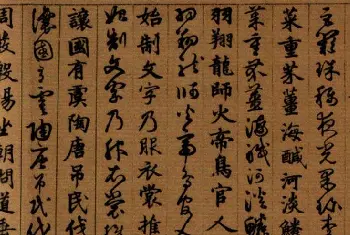 巨闕珠稱夜光果珍李
菜重芥薑海鹹河淡鱗
菜重芥薑海鹹河淡鱗
羽翔龍師火帝鳥官人
羽翔龍師火帝鳥官人
始制文字乃服衣裳推
始制文字乃服衣裳推
讓國有虞陶唐吊民伐
讓國有虞陶唐吊民伐
周發殷湯坐朝問道垂